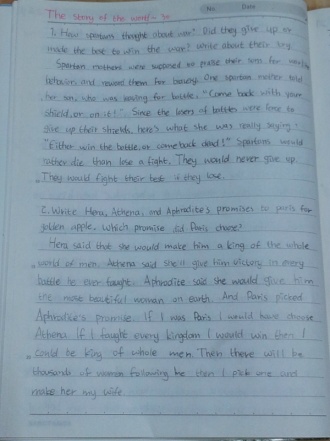 No. Date
The story of the world - 20
1. How spartans thought about war? Did they give up or
made the best to win the war? Write about their
Spartan mothers were supposed to praise their sons for
behavior, and reward them for bravery. One spartan mother told
her son, who was leaving for battle, "Come back with your
shield, or on it!". Since the losers of battles were forced to
give up their shields, here's what she was really saying:
"Either win the battle, or come back dead!" Spartans would
rather die than lose a fight. They would never give up.
They would fight their best if they lose.
2. Write Hera, Athena, and Aphrodite's promises to paris for
golden apple. Which promise did Paris chose?
Hera said that she would make him a king of the whole
world of men. Athena said she'll give him victory in every
battle he ever fought. Aphrodite said she would give him
the most beautiful woman on earth. And Paris picked
Aphrodite's promise. If I was Paris I would have choose
Athena. If I fought every kingdom I would win then I
could be king of whole men. Then there will be
thousands of women following me then I pick one and
make her my wife.